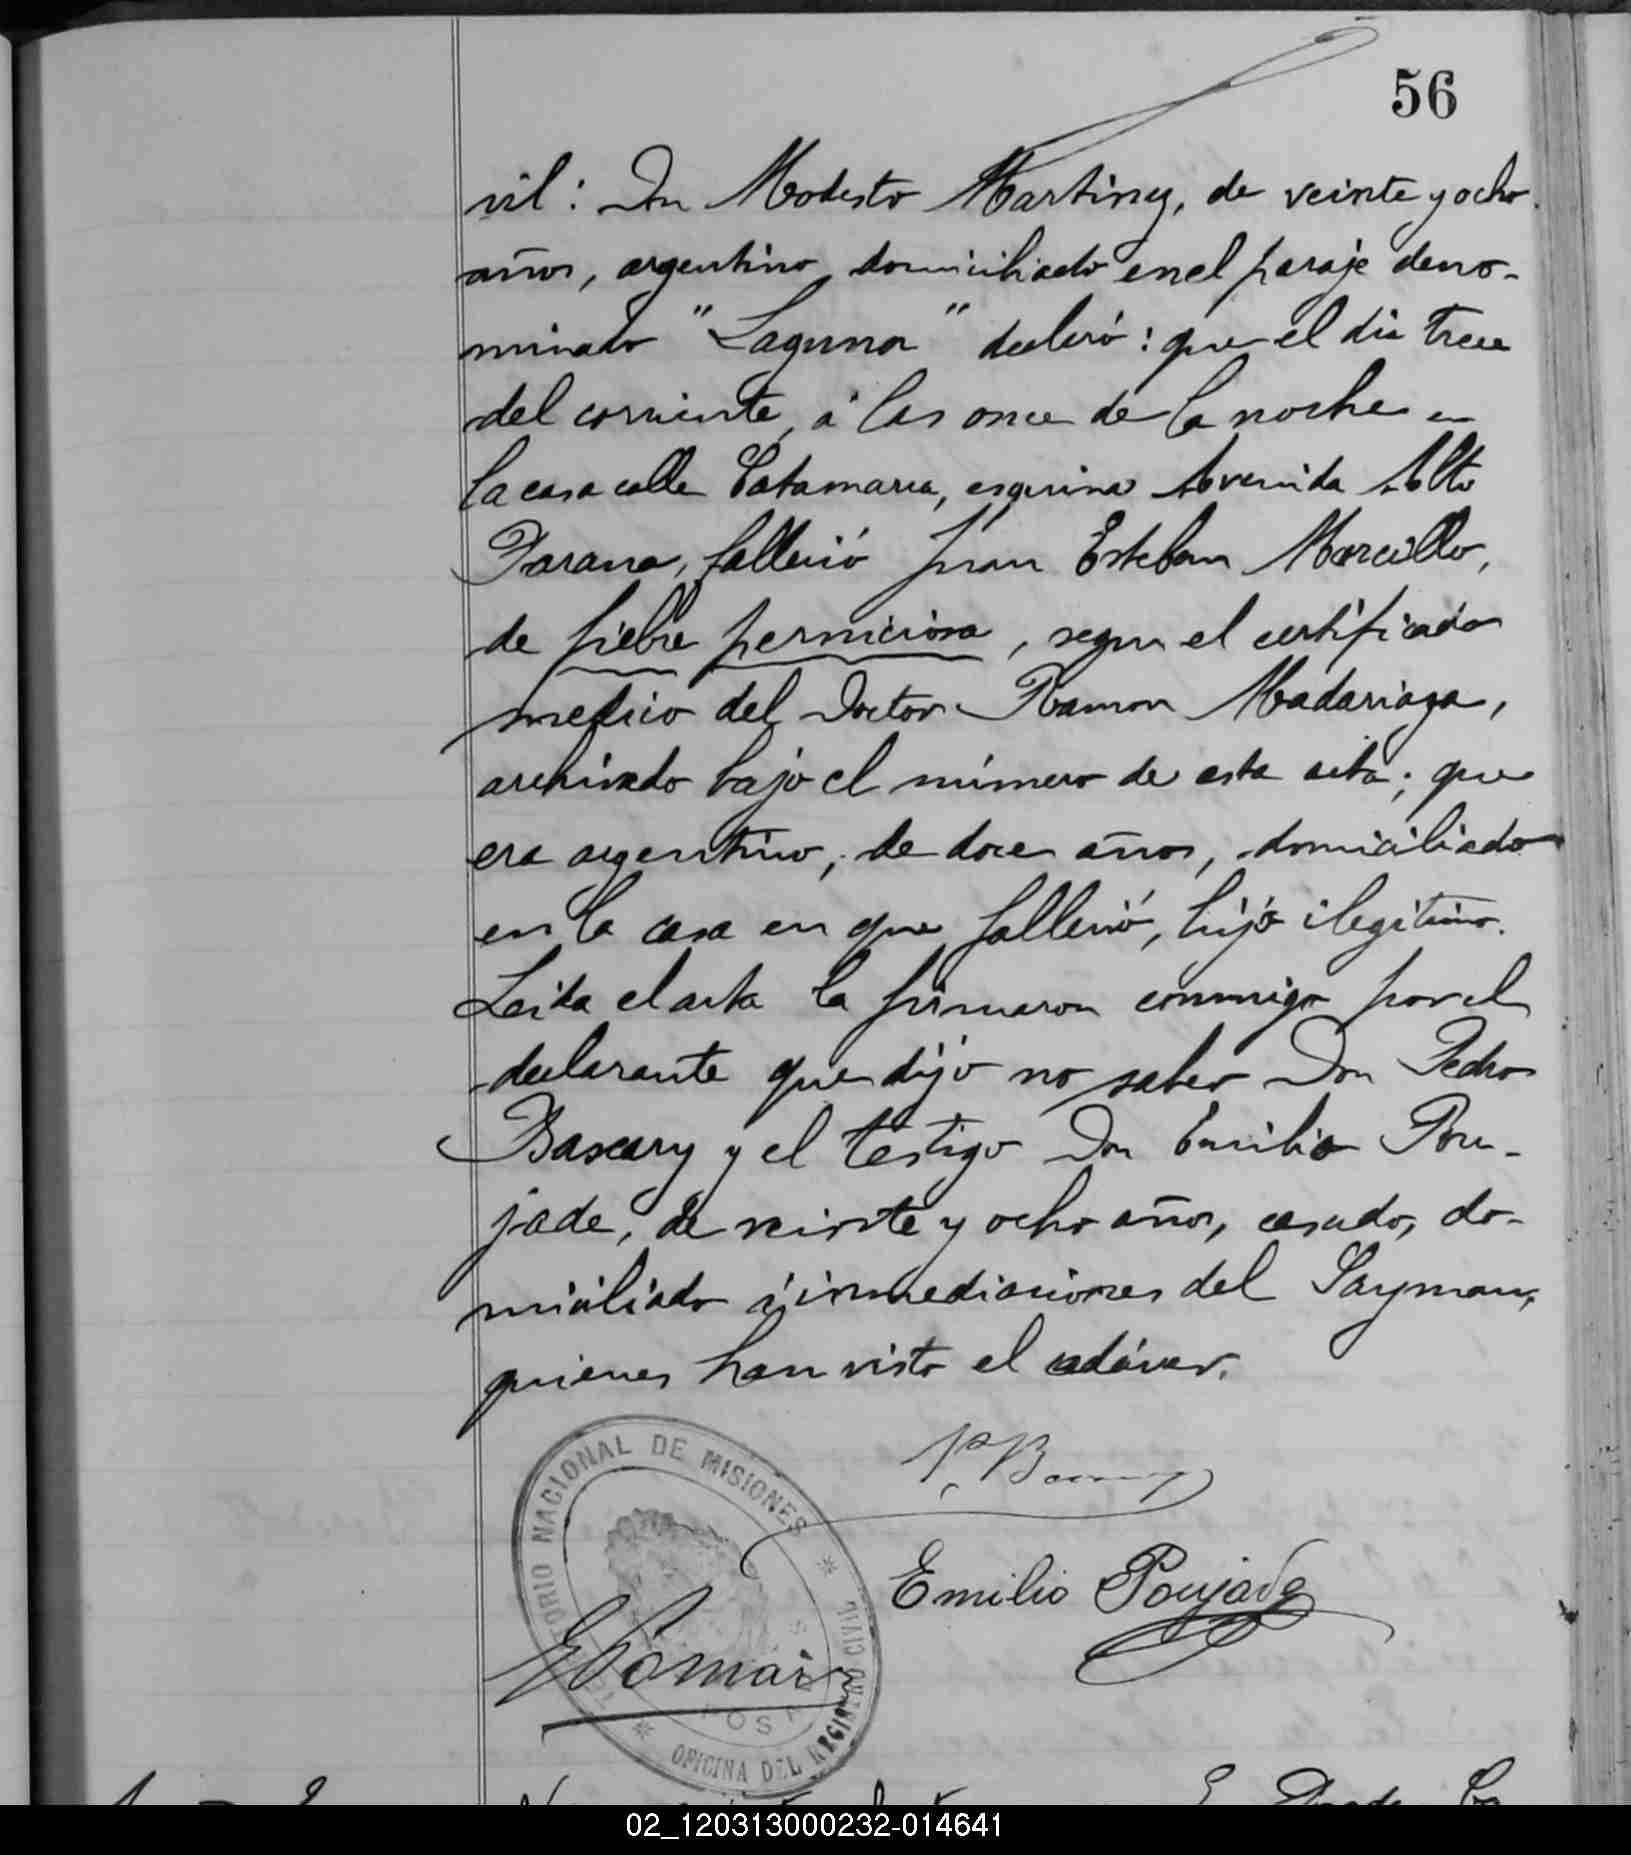 56
vil: Don Modesto Martinez, de veinte y ocho
años, argentino, domiciliado en el paraje deno-
minado "Laguna" declaró: que el dia trece
del corriente, á las once de la noche en
la casa calle Catamarca, esquina Avenida Alto
Parana, falleció Juan Esteban Morcillo,
de fiebre perniciosa, segun el certificado
medico del Doctor Ramon Madariaga,
archivado bajo el número de esta acta; que
era argentino, de doce años, domiciliado
en la casa en que falleció, hijo ilegitimo.
Leida el acta la firmaron conmigo por el
declarante que dijo no saber Don Pedro
Bascary y el testigo Don Emilio Pou-
jade, de veinte y ocho años, casado, do-
miciliado á inmediaciones del Zayman,
quienes han visto el cadáver.
TERRITORIO NACIONAL DE MISIONES
OFICINA DEL REGISTRO CIVIL
POSADAS
P. Bascary
Emilio Poujade
02_120313000232-014641